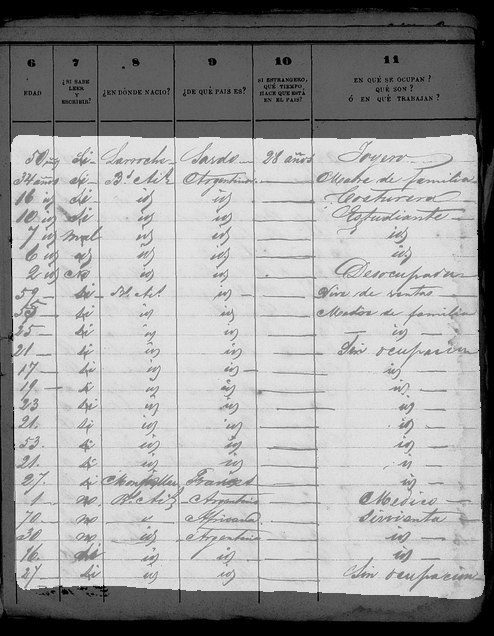 6 7 8 9 10 11
EDAD ¿NI SABE LEER Y ESCRIBIR? ¿EN DÓNDE NACIO? ¿DE QUÉ PAIS ES? SI ESTRANGERO, QUÉ TIEMPO HACE QUE ESTÁ EN EL PAIS? EN QUÉ SE OCUPAN? QUÉ SON? Ó EN QUÉ TRABAJAN?
50 Si Sardo 28 años Joyero
34 años si Bs Ais Argentina Madre de familia
16 id si id id Costurera
10 id si id id Estudiante
7 id mal id id id
6 id id id id
2 id no id id Desocupada
59 si Bs As id Vive de rentas
si id id Madre de familia
35 si id id id
21 si id id Sin ocupacion
17 si id id id
19 si id id id
23 si id id id
21 si id id id
53 si id id id
21 si id id id
27 si Frances
1 n Bs Ais Argentino Medico
70 n Africana Sirvienta
30 n id Argentina id
16 si id id id
27 si id id Sin ocupacion